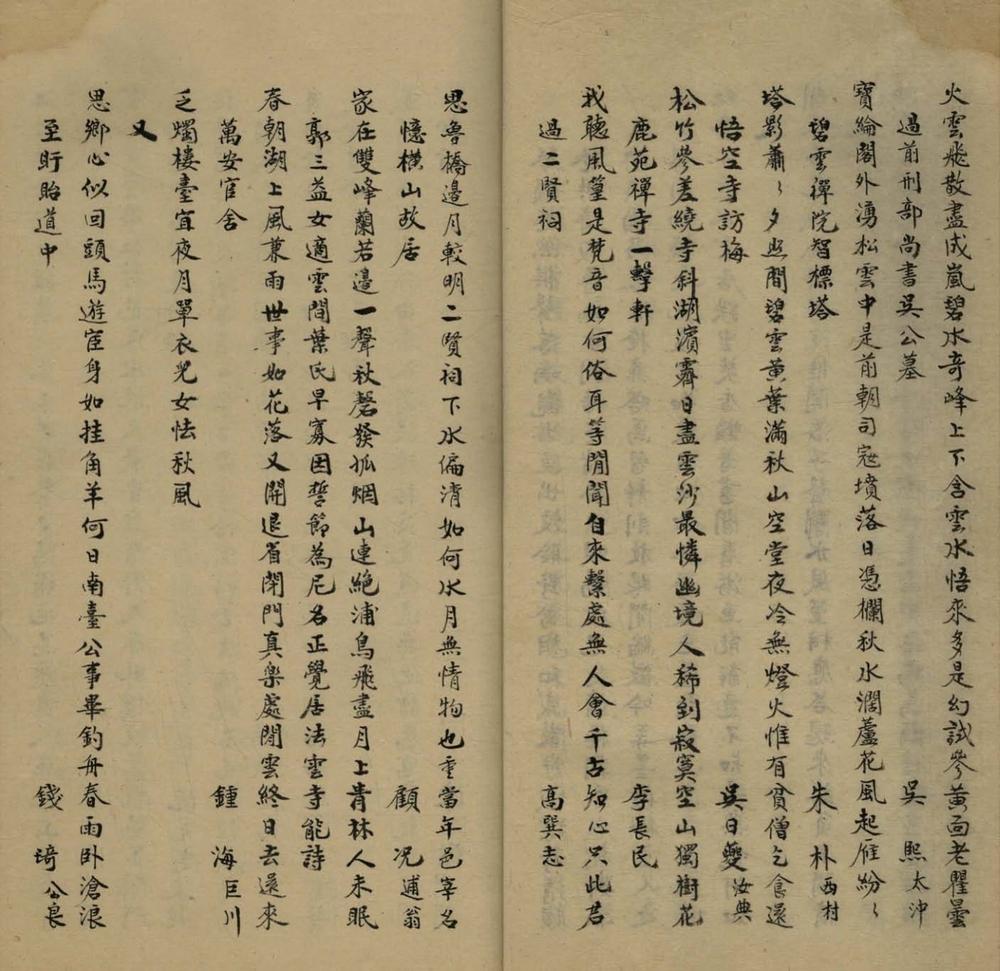 火雲飛散盡成嵐碧水奇峰上下含雲水悟來多是幻試參黃面老瞿曇
過前刑部尚書吳公墓 吳熙太沖
寶綸閣外湧松雲中是前朝司寇墳落日憑欄秋水濶蘆花風起雁紛〻
碧雲禪院智標塔 朱朴西村
塔影蕭〻夕照間碧雲黃葉滿秋山空堂夜冷無燈火惟有貧僧乞食還
悟空寺訪梅 吳日夔汝典
松竹參差繞寺斜湖濱霽日盡雲沙最憐幽境人稀到寂寞空山獨樹花
鹿苑禪寺一擊軒 李長民
我聽風篁是梵音如何俗耳等閒聞自來擊處無人會千古知心只此君
過二賢祠 高巽志
思魯橋邊月較明二賢祠下水偏清如何水月無情物也重當年邑宰名
憶橫山故居 顧况逋翁
家在雙峰蘭若邉一聲秋磬發孤烟山連絶浦鳥飛盡月上青林人未眠
郭三益女適雲間葉氏早寡因誓節為尼名正覺居法雲寺能詩
春朝湖上風兼雨世事如花落又開退省閉門真樂處閒雲終日去還來
萬安官舍 鍾海巨川
乏燭樓臺宜夜月單衣児女怯秋風
又
思鄉心似回頭馬遊宦身如挂角羊何日南臺公事畢釣舟春雨卧滄浪
至盱眙道中 錢琦公良